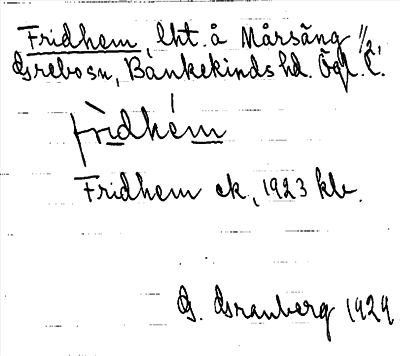 Fridhem, lht. å Mårsäng 1/2,
Grebo sn, Bankekinds hd. Ögl. L.
fri̇̀dhém
Fridhem ek, 1923 kbr.
G. Granberg 1929